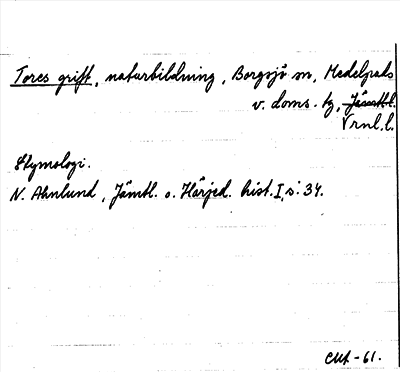 Tores grift, naturbildning, Borgsjö sn, Medelpads
v. doms. tg, Jämtl.l.
Vrnl.l.
Etymologi.
N. Ahnlund, Jämtl. o. Härjed. hist. I, s. 34.
CUA-61.